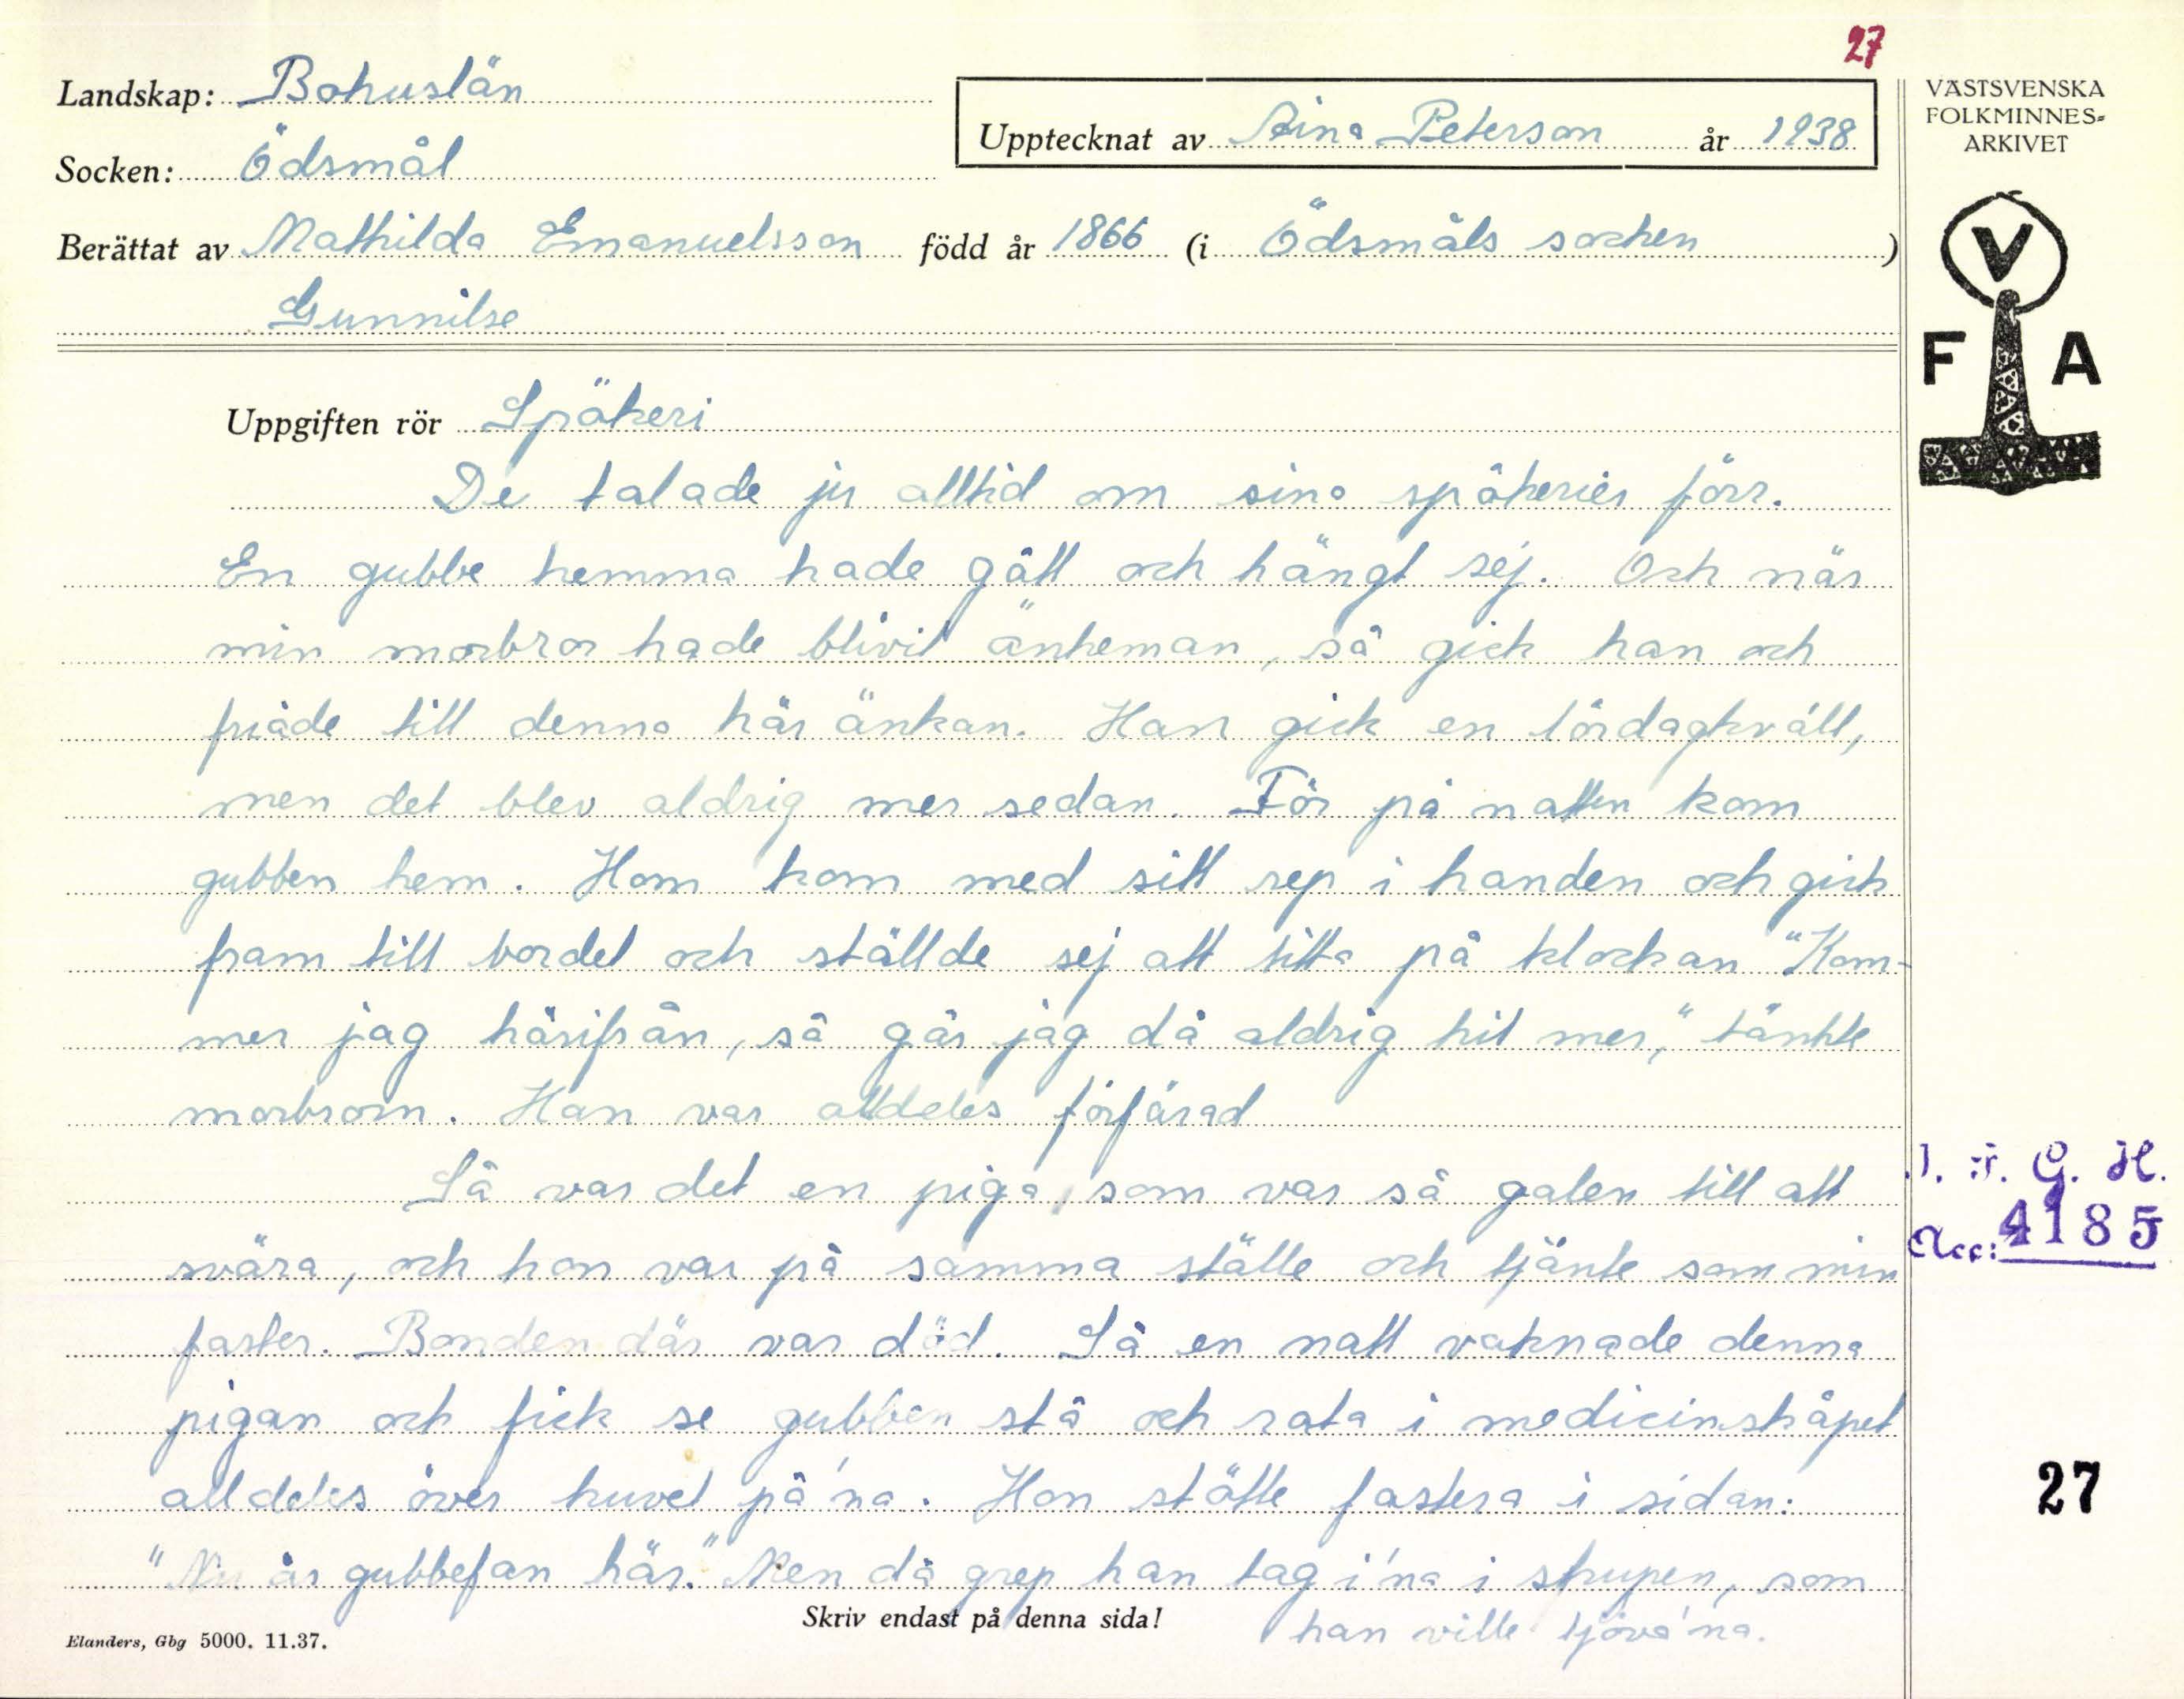 27
Landskap: Bohuslän
Upptecknat av Aina Peterson år 1938
VÄSTSVENSKA
FOLKMINNES-
ARKIVET
Socken: Ödsmål
Berättat av Mathilda Emanuelsson född år 1866 (i Ödsmåls socken )
Gunnilse
V
F A
Uppgiften rör Spökeri
De talade ju alltid om sina spökerier förr.
En gubbe hemma hade gått och hängt sej. Och när
min morbror hade blivit änkeman, så gick han och
friade till denna här änkan. Han gick en lördagkväll,
men det blev aldrig mer sedan. För på natten kom
gubben hem. Hom kom med sitt rep i handen och gick
fram till bordet och ställde sej att titta på klockan "Kom-
mer jag härifrån, så går jag då aldrig hit mer," tänkte
morbrorn. Han var alldeles förfärad
Så var det en piga, som var så galen till att
svära, och hon var på samma ställe och tjänte som min
faster. Bonden där var död. Så en natt vaknade denna
pigan och fick se gubben stå och rota i medicinskåpet
alldeles över huvet på'na. Hon stötte fastera i sidan:
"Nu är gubbefan här." Men då grep han tag i'na i strupen, som
han ville tjöva'na.
I. F. G. H.
Acc: 4185
27
Skriv endast på denna sida!
Elanders, Gbg 5000. 11.37.